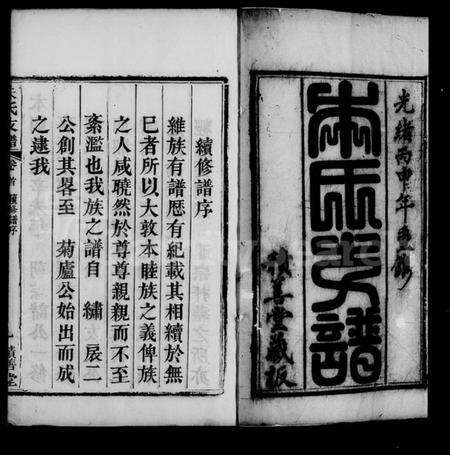 光緒丙申年重鐫
朱氏支譜
積善堂藏板
續修譜序
維族有譜歷有紀載其相續於無
已者所以大敦本睦族之義俾族
之人咸曉然於尊尊親親而不至
紊濫也我族之譜自 繡 扆二
公創其畧至 菊廬公始出而成
之逮我
朱氏支譜 卷首 續修譜序 一 積善堂